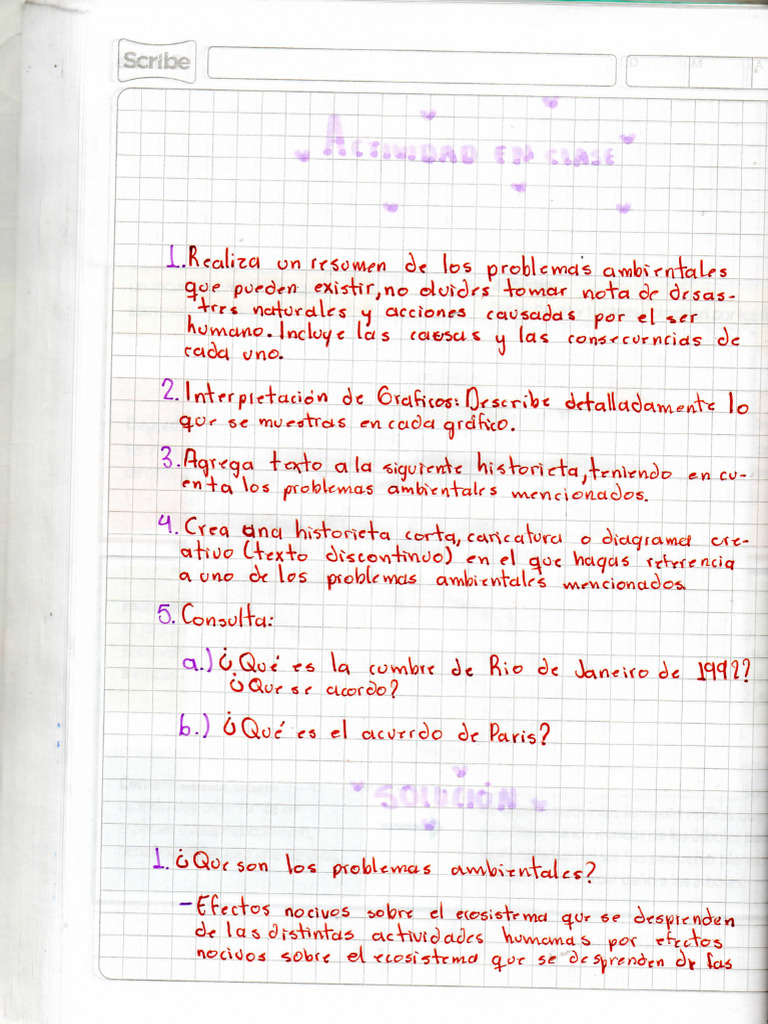 Scribe
D M A
ACTIVIDAD EN CLASE
1. Realiza un resumen de los problemas ambientales
que pueden existir, no olvides tomar nota de desas-
tres naturales y acciones causadas por el ser
humano. Incluye las causas y las consecuencias de
cada uno.
2. Interpretación de Graficos: Describe detalladamente lo
que se muestras en cada gráfico.
3. Agrega texto a la siguiente historieta, teniendo en cu-
enta los problemas ambientales mencionados.
4. Crea una historieta corta, caricatura o diagrama cre-
ativo (texto discontinuo) en el que hagas referencia
a uno de los problemas ambientales mencionados
5. Consulta:
a.) ¿Qué es la cumbre de Rio de Janeiro de 1992?
¿Que se acordo?
b.) ¿Qué es el acuerdo de Paris?
SOLUCIÓN
1. ¿Que son los problemas ambientales?
- Efectos nocivos sobre el ecosistema que se desprenden
de las distintas actividades humanas por efectos
nocivos sobre el ecosistema que se desprenden de las